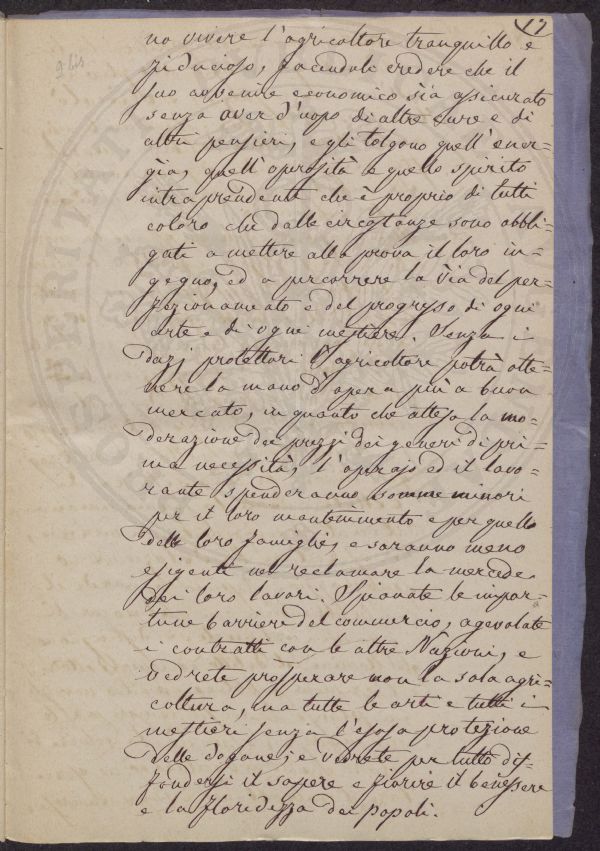 17
9 bis
no vivere l'agricoltore tranquillo e
fiducioso, facendoli credere che il
suo avvenire economico sia assicurato
senza aver d'uopo di altre cure e di
altri pensieri, e gli tolgono quell'ener-
gìa, quell'operosità e quello spirito
intraprendente che è proprio di tutti
coloro che dalle circostanze sono obbli-
gati a mettere alla prova il loro in-
gegno, ed a percorrere la via del per-
fezionamento e del progresso di ogni
arte e di ogni mestiere. Senza i
dazj protettori l'agricoltore potrà otte-
nere la mano d'opera più a buon
mercato, in quanto che attesa la mo-
derazione dei prezzi dei generi di pri-
ma necessità, l'operajo ed il lavo-
rante spenderanno somme minori
per il loro mantenimento e per quello
delle loro famiglie, e saranno meno
esigenti nel reclamare la mercede
dei loro lavori. Spianate le impor-
tune barriere del commercio, agevolate
i contratti con le altre Nazioni, e
vedrete prosperare non la sola agri-
coltura, ma tutte le arti e tutti i
mestieri senza l'esosa protezione
delle dogane; e vedrete per tutto dif-
fondersi il sapere e fiorire il benessere
e la floridezza dei popoli.